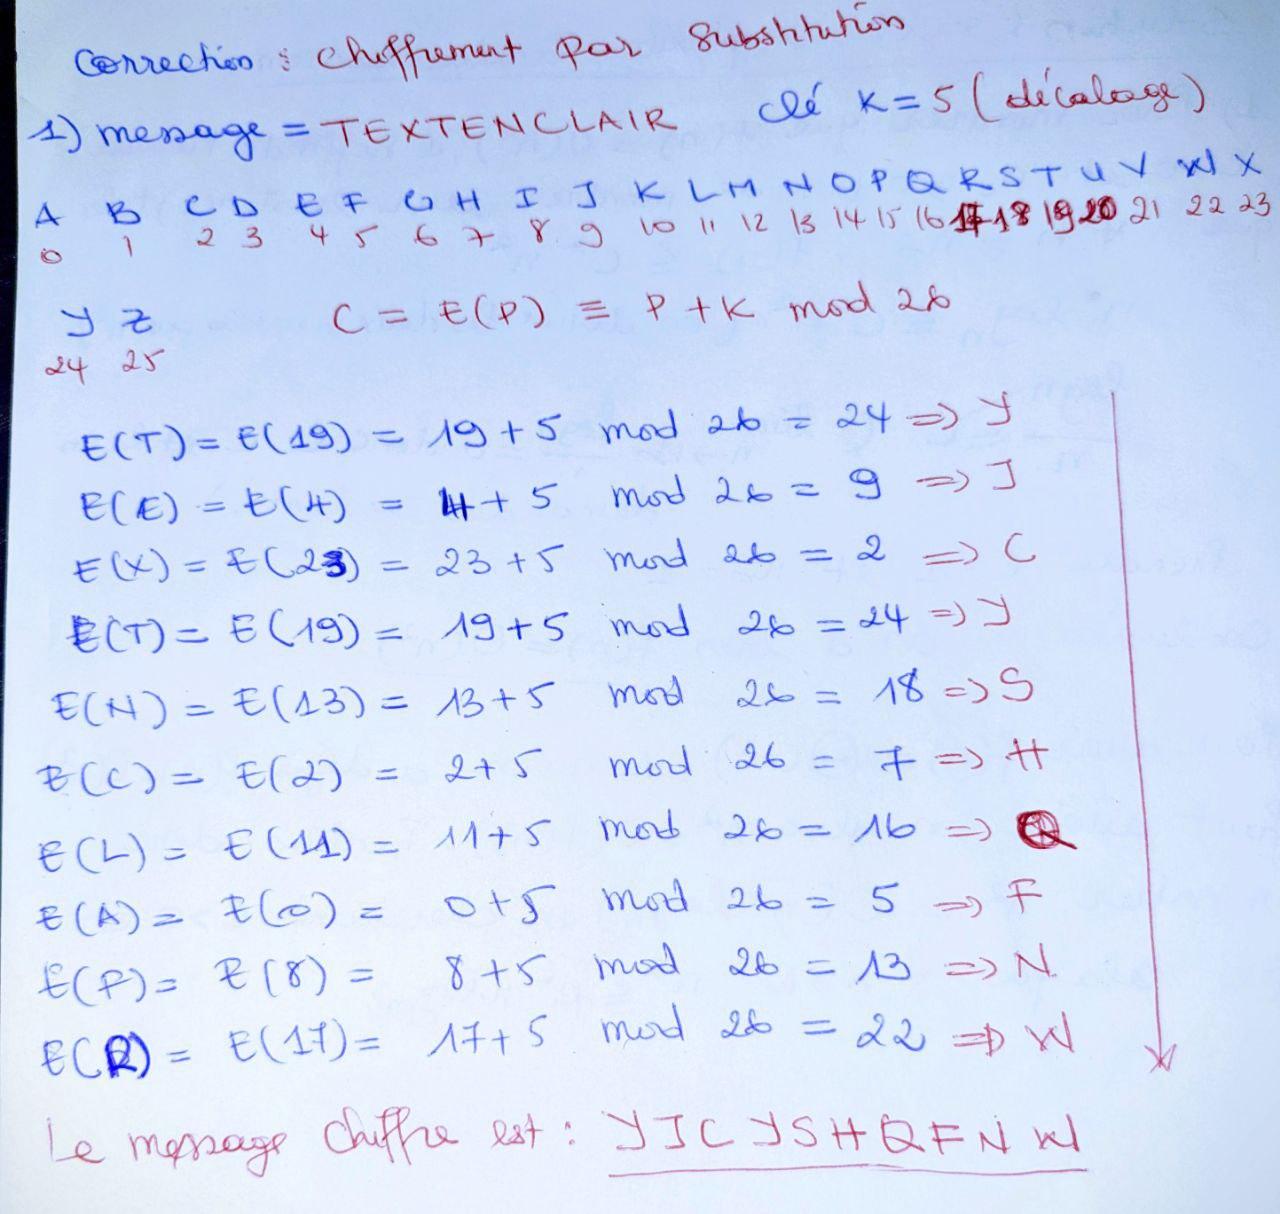 Correction : Chiffrement par Substitution
1) message = TEXTENCLAIR clé K=5 (décalage)
A B C D E F G H I J K L M N O P Q R S T U V W X
0 1 2 3 4 5 6 7 8 9 10 11 12 13 14 15 16 17 18 19 20 21 22 23
Y Z C = E(P) ≡ P + K mod 26
24 25
E(T) = E(19) = 19 + 5 mod 26 = 24 => Y
E(E) = E(4) = 4 + 5 mod 26 = 9 => J
E(X) = E(23) = 23 + 5 mod 26 = 2 => C
E(T) = E(19) = 19 + 5 mod 26 = 24 => Y
E(N) = E(13) = 13 + 5 mod 26 = 18 => S
E(C) = E(2) = 2 + 5 mod 26 = 7 => H
E(L) = E(11) = 11 + 5 mod 26 = 16 => Q
E(A) = E(0) = 0 + 5 mod 26 = 5 => F
E(P) = E(8) = 8 + 5 mod 26 = 13 => N
E(R) = E(17) = 17 + 5 mod 26 = 22 => W
Le message chiffre est : YJCYSHQFNW